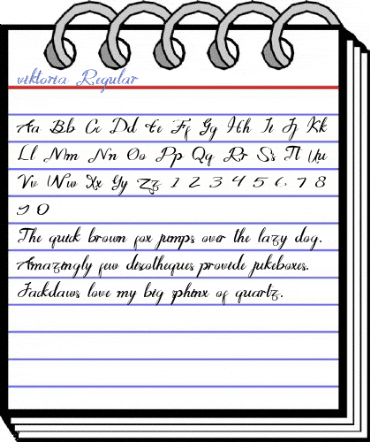 viktoria Regular
Aa Bb Cc Dd Ee Ff Gg Hh Ii Jj Kk
Ll Mm Nn Oo Pp Qq Rr Ss Tt Uu
Vv Ww Xx Yy Zz 1 2 3 4 5 6 7 8
9 0
The quick brown fox jumps over the lazy dog.
Amazingly few discotheques provide jukeboxes.
Jackdaws love my big sphinx of quartz.